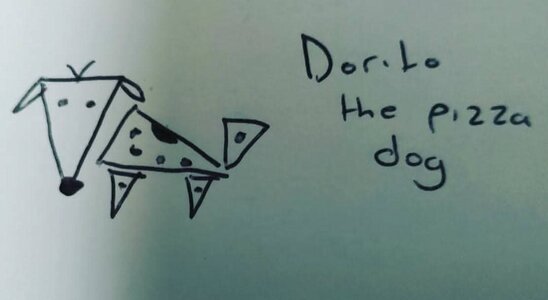 Dorito
the pizza
dog